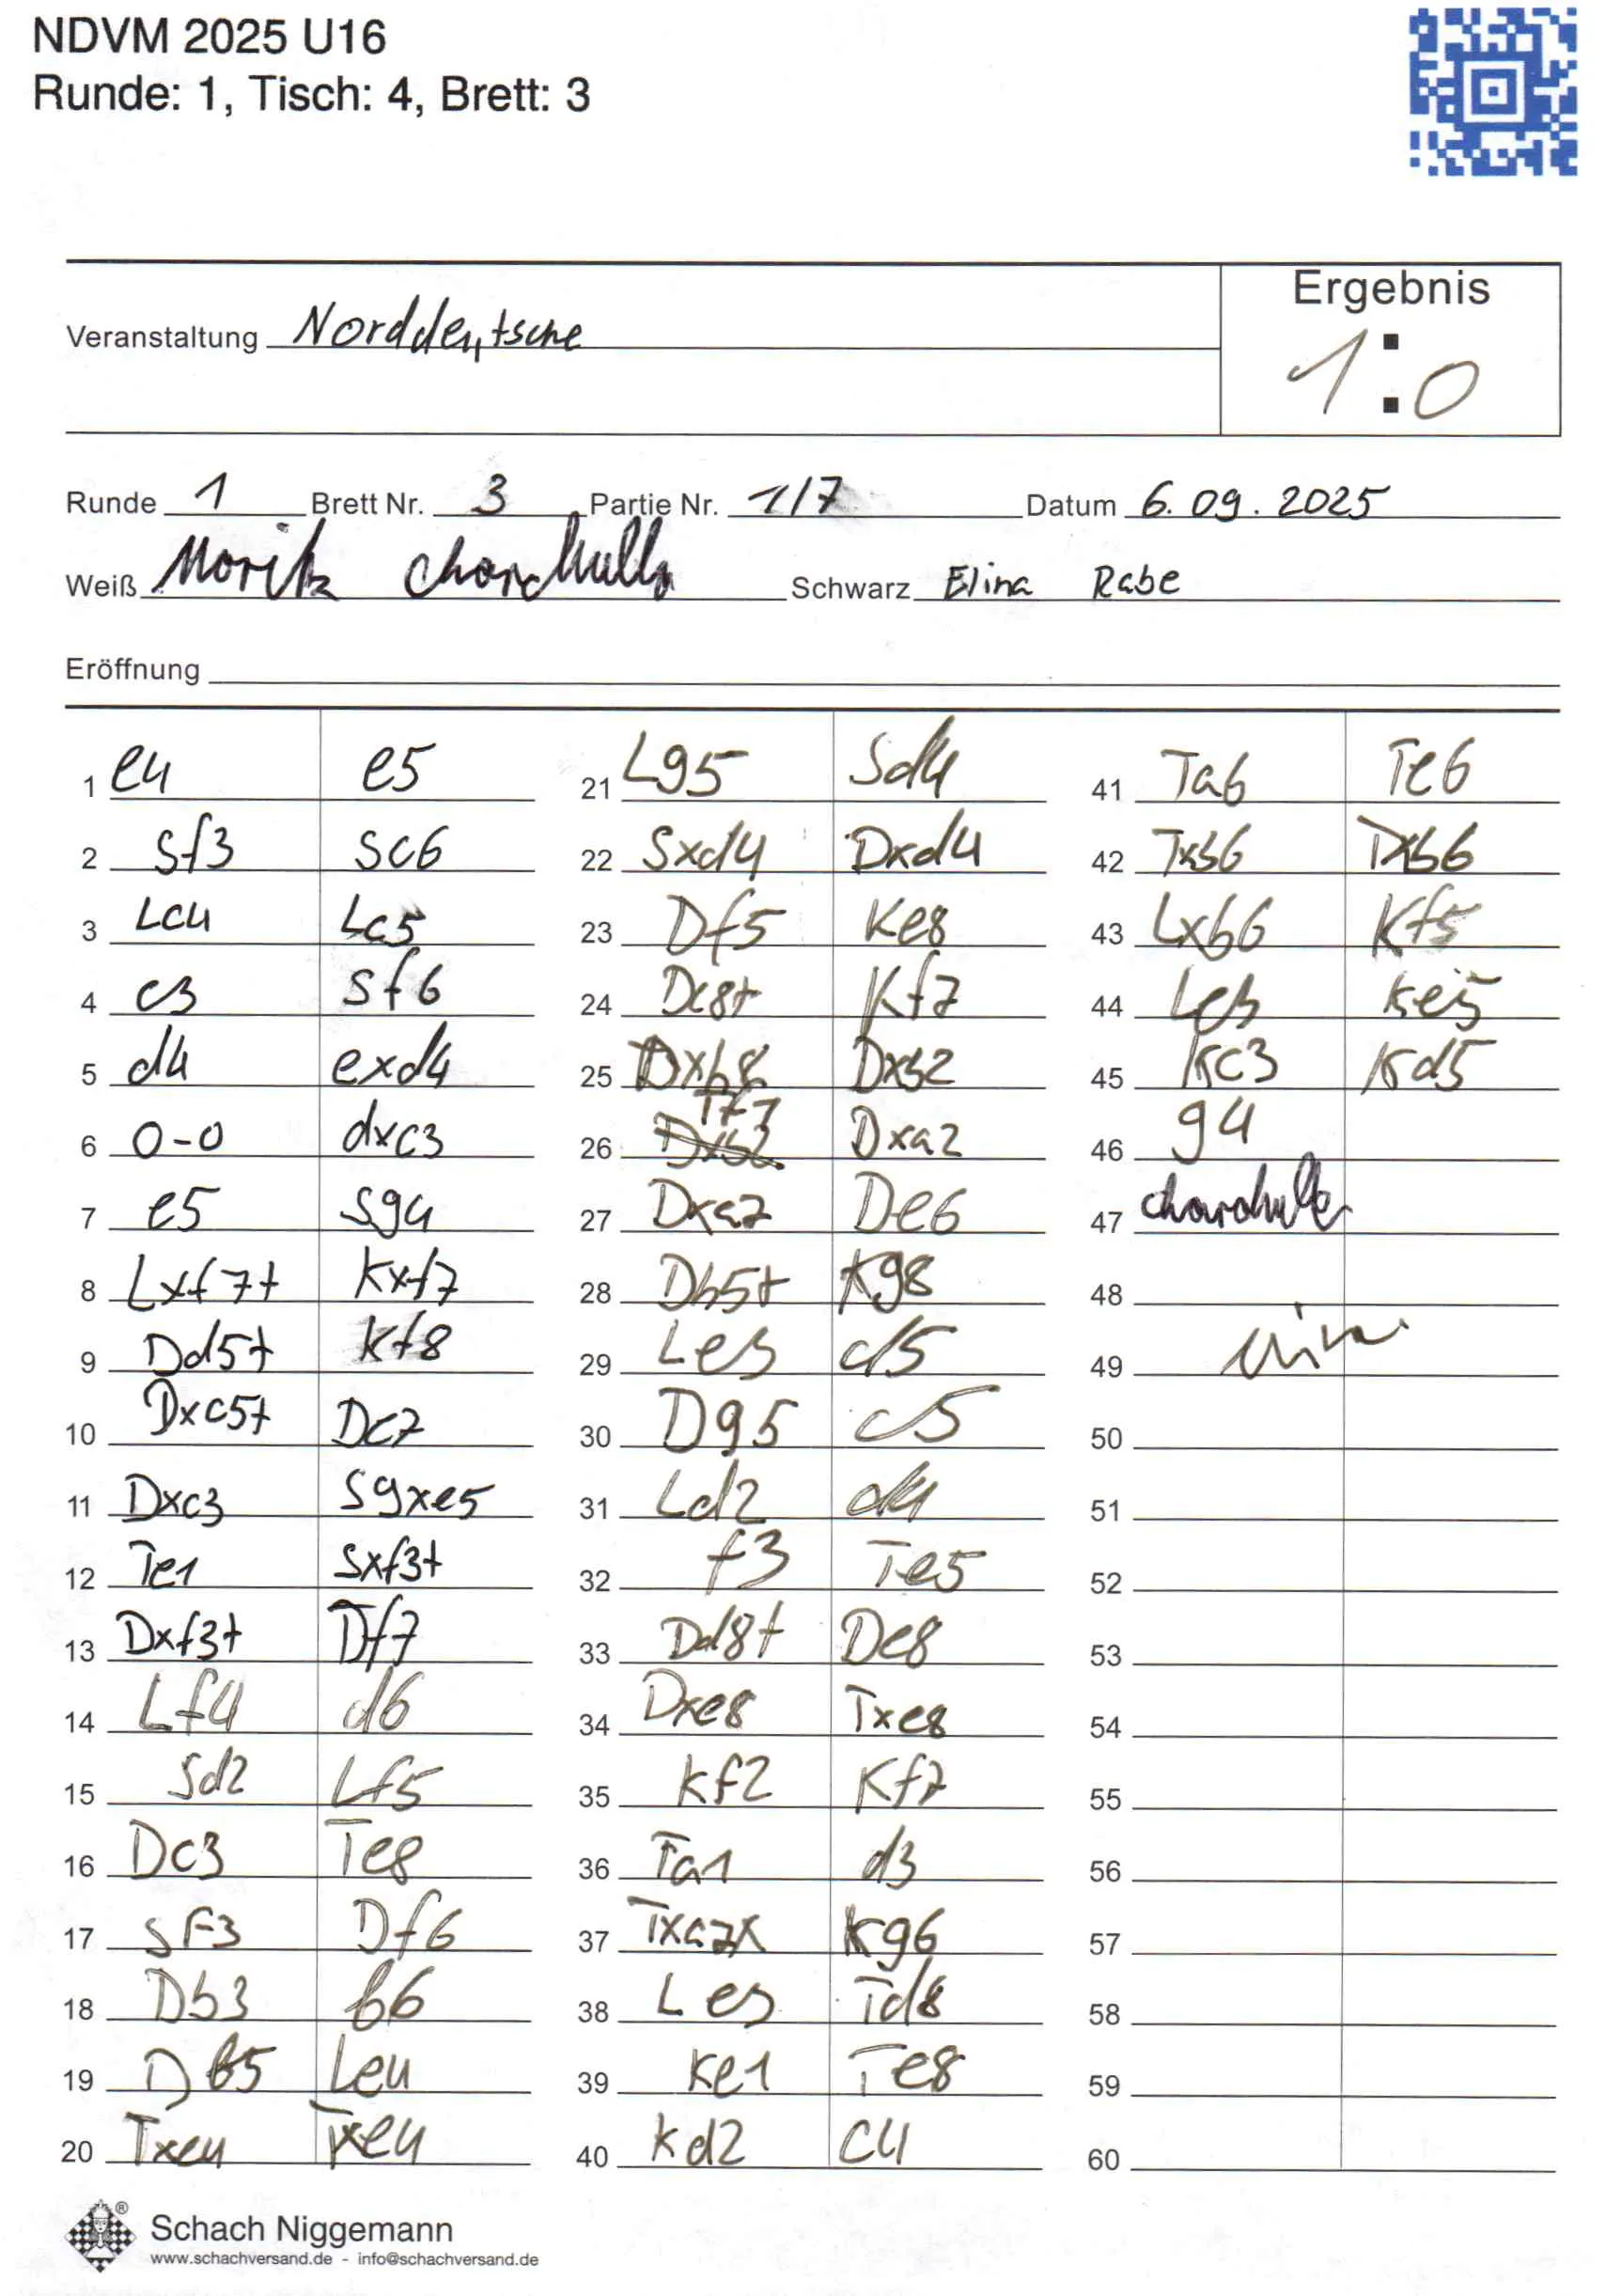 NDVM 2025 U16
Runde: 1, Tisch: 4, Brett: 3
Ergebnis
Veranstaltung Norddeutsche
1:0
Runde 1 Brett Nr. 3 Partie Nr. 1/7 Datum 6. 09. 2025
Weiß Moritz Schwarz Elina Rabe
Eröffnung
1 e4 e5
2 Sf3 Sc6
3 Lc4 Lc5
4 c3 Sf6
5 d4 exd4
6 0-0 dxc3
7 e5 Sg4
8 Lxf7+ Kxf7
9 Dd5+ Kf8
10 Dxc5+ De7
11 Dxc3 Sgxe5
12 Te1 Sxf3+
13 Dxf3+ Df7
14 Lf4 d6
15 Sd2 Lf5
16 Dc3 Te8
17 SF3 Df6
18 Db3 b6
19 Db5 Le4
20 Txe4 Txe4
21 Lg5 Sd4
22 Sxd4 Dxd4
23 Df5 Ke8
24 Dc8+ Kf7
25 Dxh8 Dxb2
26 Tf1 Dxa2
27 Dxa7 De6
28 Dh5+ Kg8
29 Le3 d5
30 Dg5 c5
31 Ld2 d4
32 f3 Te5
33 Dd8+ De8
34 Dxe8 Txe8
35 Kf2 Kf7
36 Ta1 d3
37 Txa7x Kg6
38 Le3 Td8
39 Ke1 Te8
40 Kd2 C4
41 Ta6 Te6
42 Txb6 Txb6
43 Lxb6 Kf5
44 Le3 Ke5
45 Kc3 Kd5
46 g4
47
48
49
50
51
52
53
54
55
56
57
58
59
60
Schach Niggemann
www.schachversand.de - info@schachversand.de